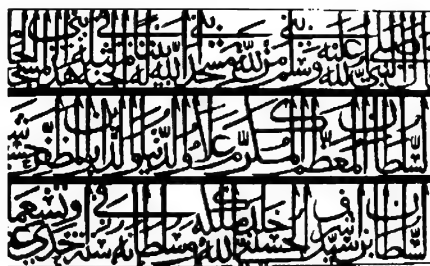 النبي صلى الله عليه وسلم من بنى لله مسجدا بنى الله له مثله في الجنة
السلطان المعظم المكرم علا الدنيا والدين ابو المظفر حسين
السلطان بن سيد اشرف الحسيني خلد الله ملكه وسلطانه في سنة احدى